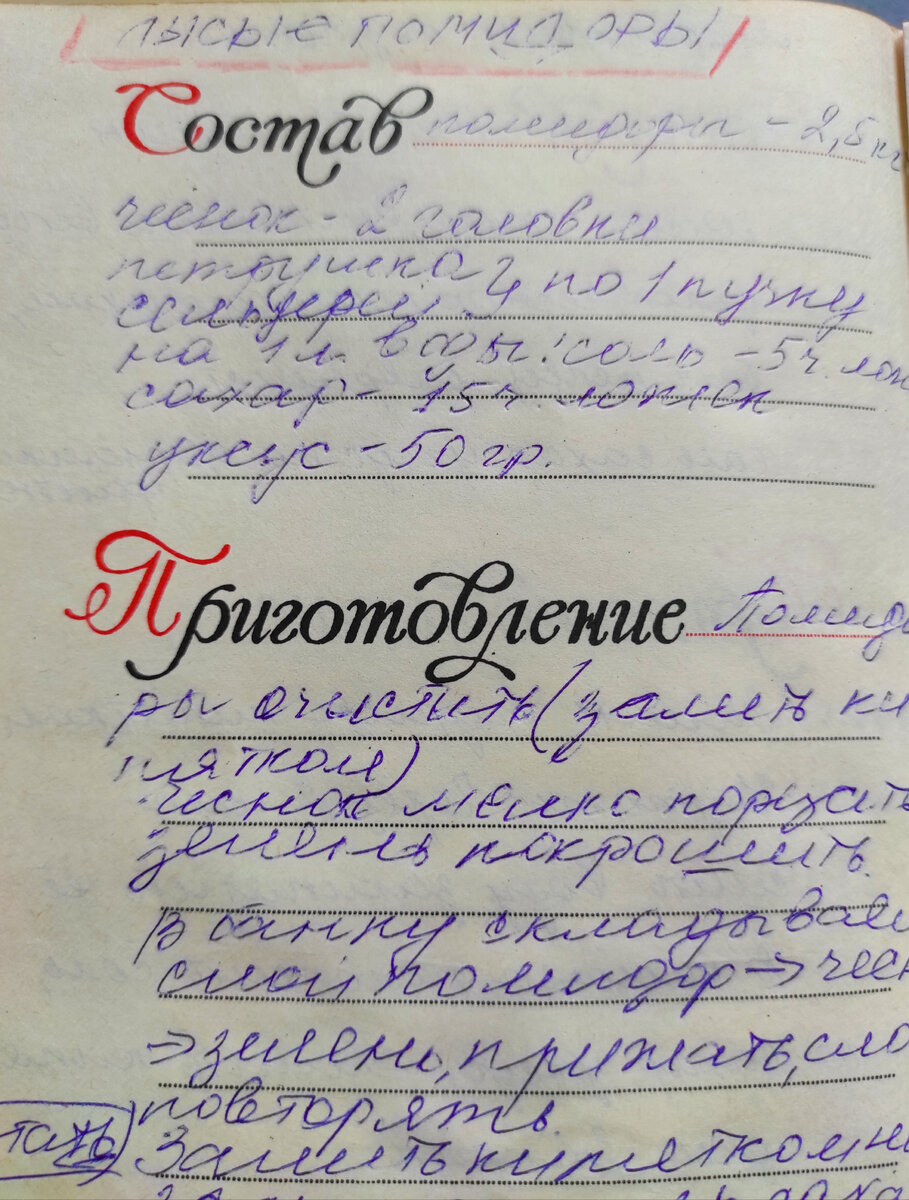 ЛЫСЫЕ ПОМИДОРЫ
Состав помидоры - 2,5 кг
чеснок - 2 головки
петрушка
сельдерей } по 1 пучку
на 1 л. воды: соль - 5 ч. лож
сахар - 15 ч. ложек
уксус - 50 гр.
Приготовление Помидо
ры очистить (залить ки
пятком)
чеснок мелко порезать
зелень покрошить.
В банку складываем
слой помидор → чесн
→ зелень, прижать, сло
повторять.
Залить кипятком на